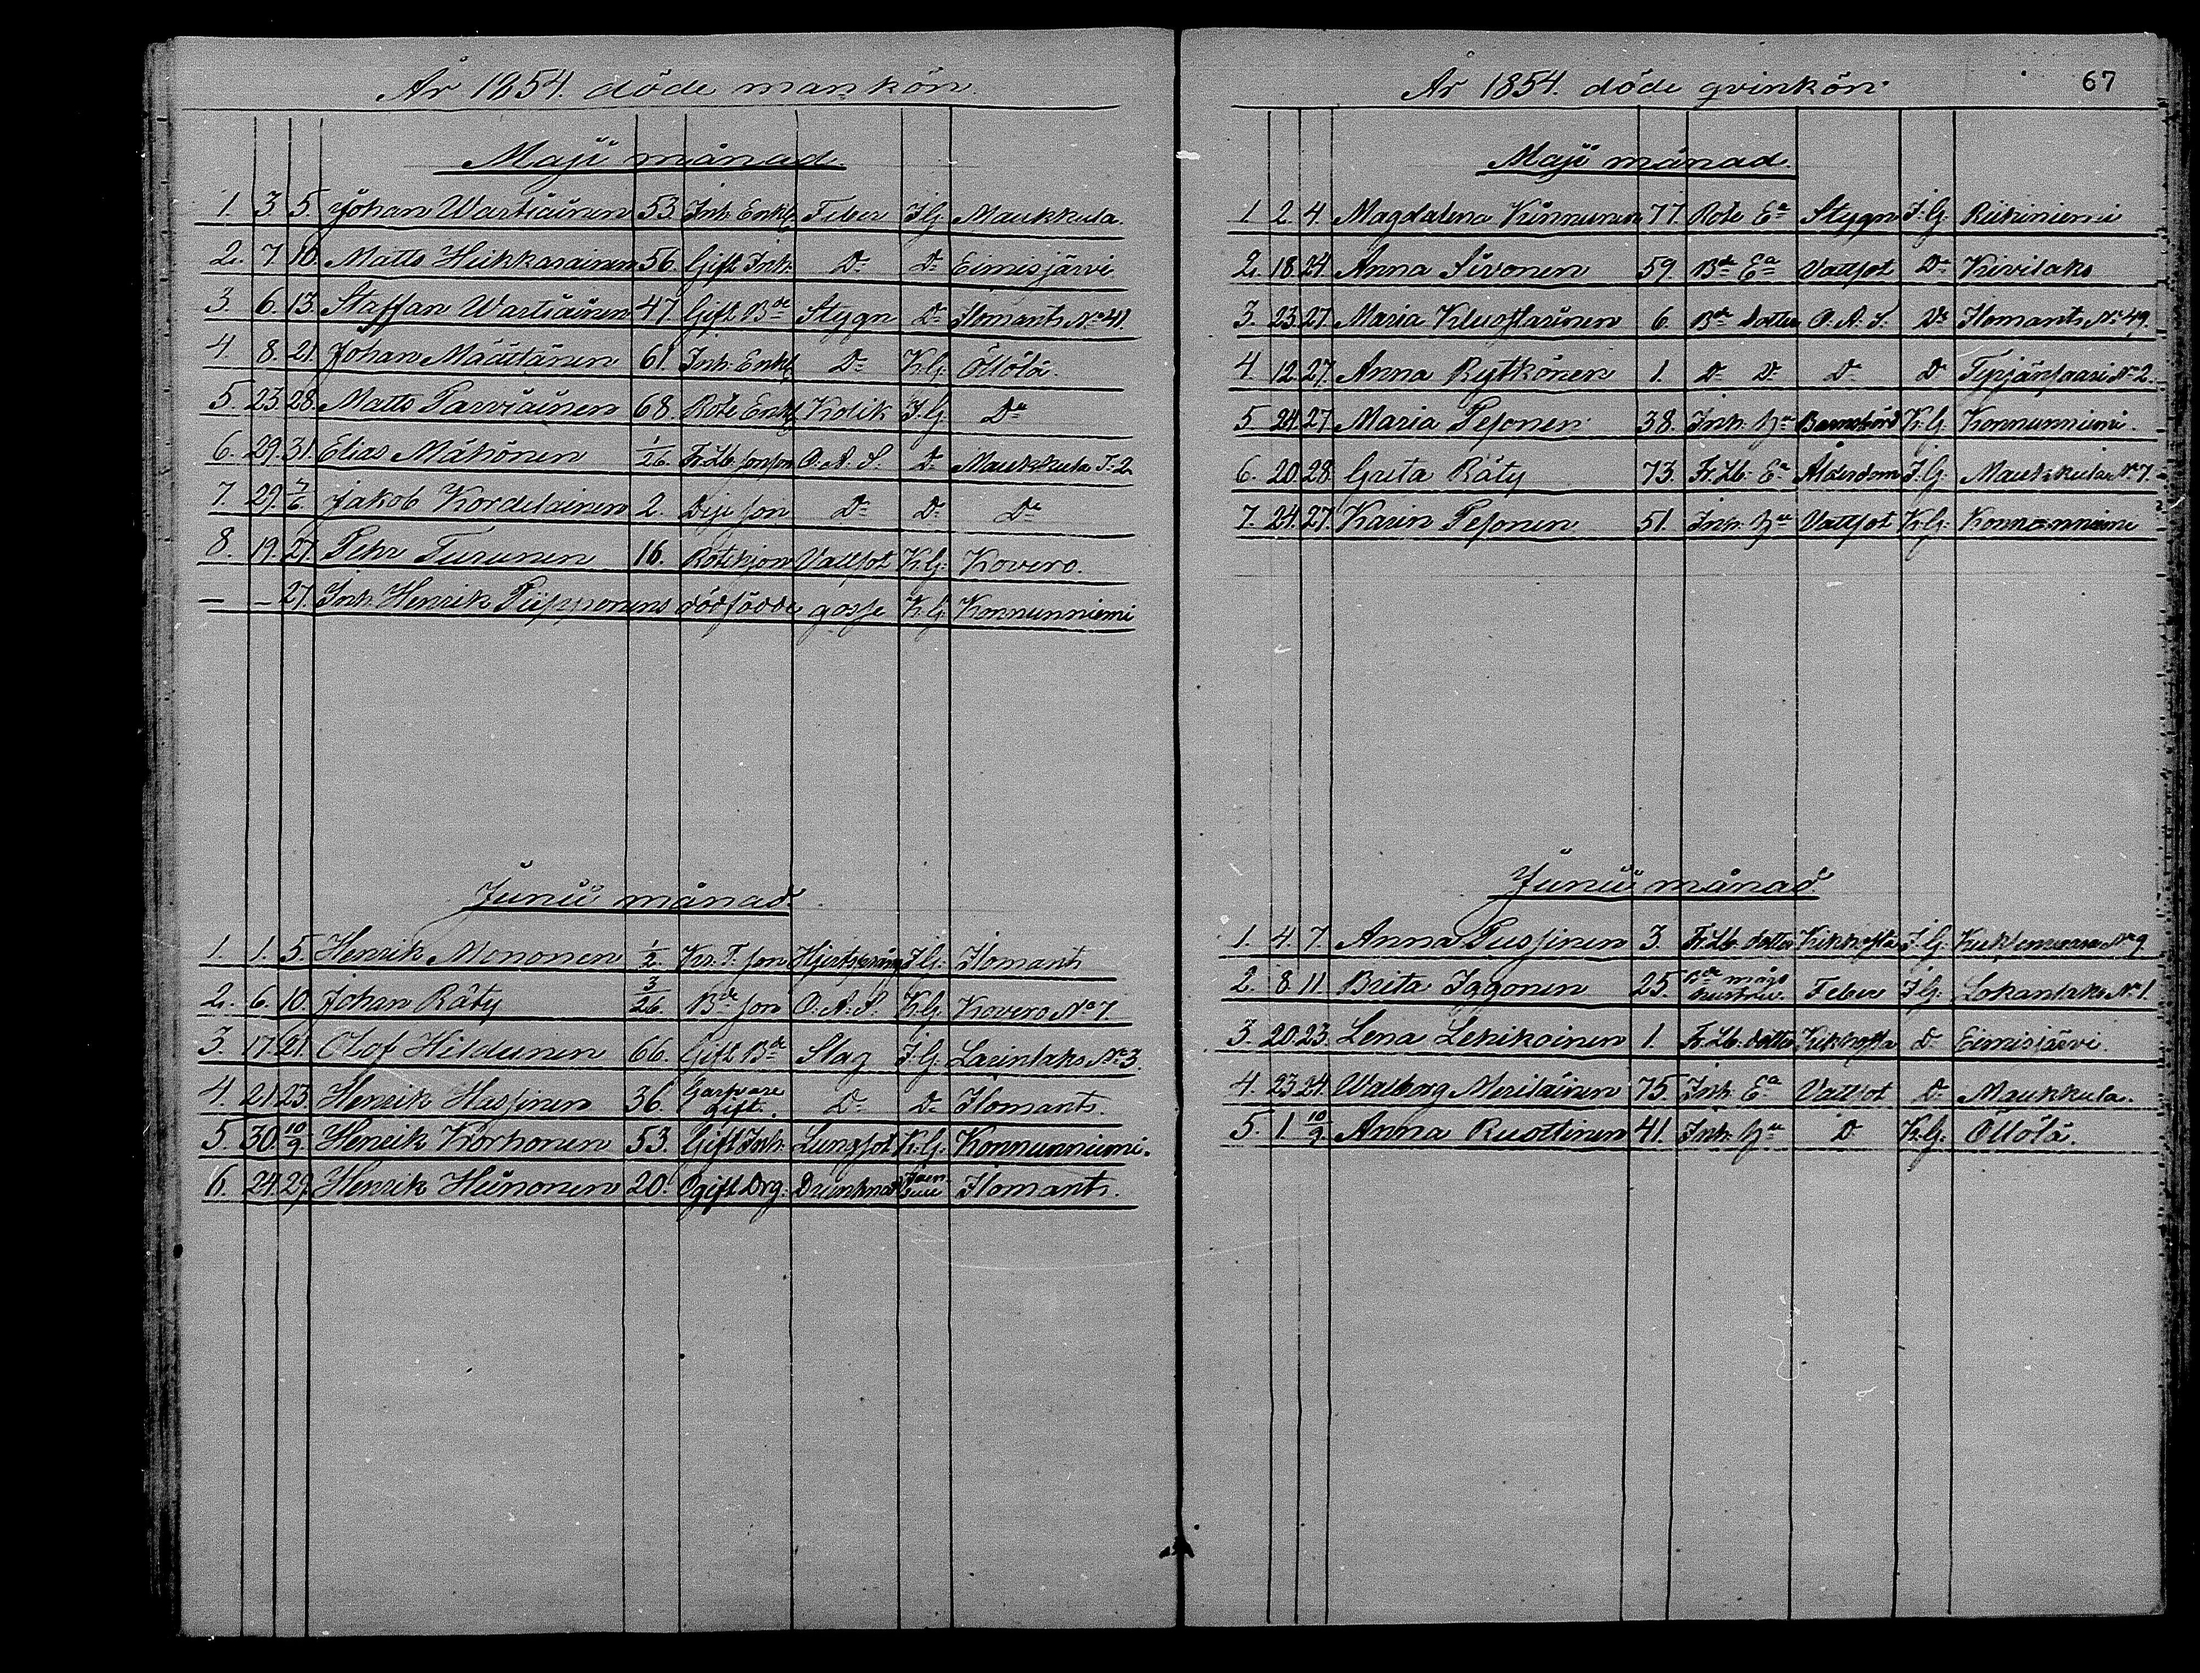 År 1854. döde mankön.
Maji månad.
1. 3 5. Johan Wartiainen 53. Inh. Enkl. Feber I.G. Maukkula.
2. 7 10. Matts Heikkarainen 56. Gift Inh. Do Do Eimisjärvi
3. 6. 13. Staffan Wartiainen 47. Gift Bde Stygn Do Ilomants No 41.
4. 8. 21. Johan Määttänen 61. Inh. Enkl. Do K.G. Öllölä.
5. 23. 28. Matts Parviainen 68. Rote Enkl. Kolik I.G. Do
6. 29. 31. Elias Mähönen 1/26. Fr. Lb. sonson O.A.S. Do Maukkula T. 2
7. 29. 7/6 Jakob Kordelainen 2. Deje son Do Do Do
8. 19. 27. Pehr Turunen 16. Vattsot K.G. Kovero.
— — 27. Inh. Henrik Piipponens dödfödde gosse K.G. Konnunniemi
Junii månad.
1. 1. 5. Henrik Mononen 1/2. Kr. T. son I.G. Ilomants
2. 6. 10. Johan Räty 3/26. Bde son O.A.S. K.G. Kovero No 7.
3. 17. 21. Olof Hildunen 66. Gift Bde Slag I.G. Larinlaks No 3.
4. 21. 23. Henrik Hassinen 36. Garfvare Gift. Do Do Ilomants.
5. 30. 10/9. Henrik Korhonen 53. Gift Inh. Lungsot K.G. Konnunniemi.
6. 24. 29. Henrik Heinonen 20. Ogift Drg. Drunknad Ilomants.
År 1854. döde qvinkön.
67
Maji månad.
1 2. 4. Magdalena Kinnunen 77. Rote Ea Stygn I.G. Riihiniemi
2. 18. 24. Anna Sivonen 59. Bde Ea Vattsot Do Kivilaks
3. 23. 27. Maria Kluostarinen 6. Bde dotter O.A.S. Do Ilomants No 49.
4. 12. 27. Anna Rytkönen 1. Do Do Do Do No 2.
5. 24. 27. Maria Pesonen 38. Inh. Hu Barnsbörd K.G. Konnunniemi.
6. 20. 28. Greta Räty 73. Fr. Lb. Ea Ålderdom I.G. Maukkula No 7.
7. 24. 27. Karin Pesonen 51. Inh. Hu Vattsot K.G. Konnunniemi
Junii månad.
1. 4. 7. Anna Pussinen 3. Fr. Lb. dotter Kikhosta I.G. No 9
2. 8. 11. Brita Iggonen 25. Bde mågs hustru. Feber I.G. Lokanlaks No 1.
3. 20. 23. Lena Lehikoinen 1. Fr. Lb. dotter Kikhosta Do Eimisjärvi.
4. 23. 24. Walborg Meriläinen 75. Inh. Ea Vattsot Do Maukkula.
5. 1. 10/9 Anna Ruottinen 41. Inh. Hu Do K.G. Öllölä.